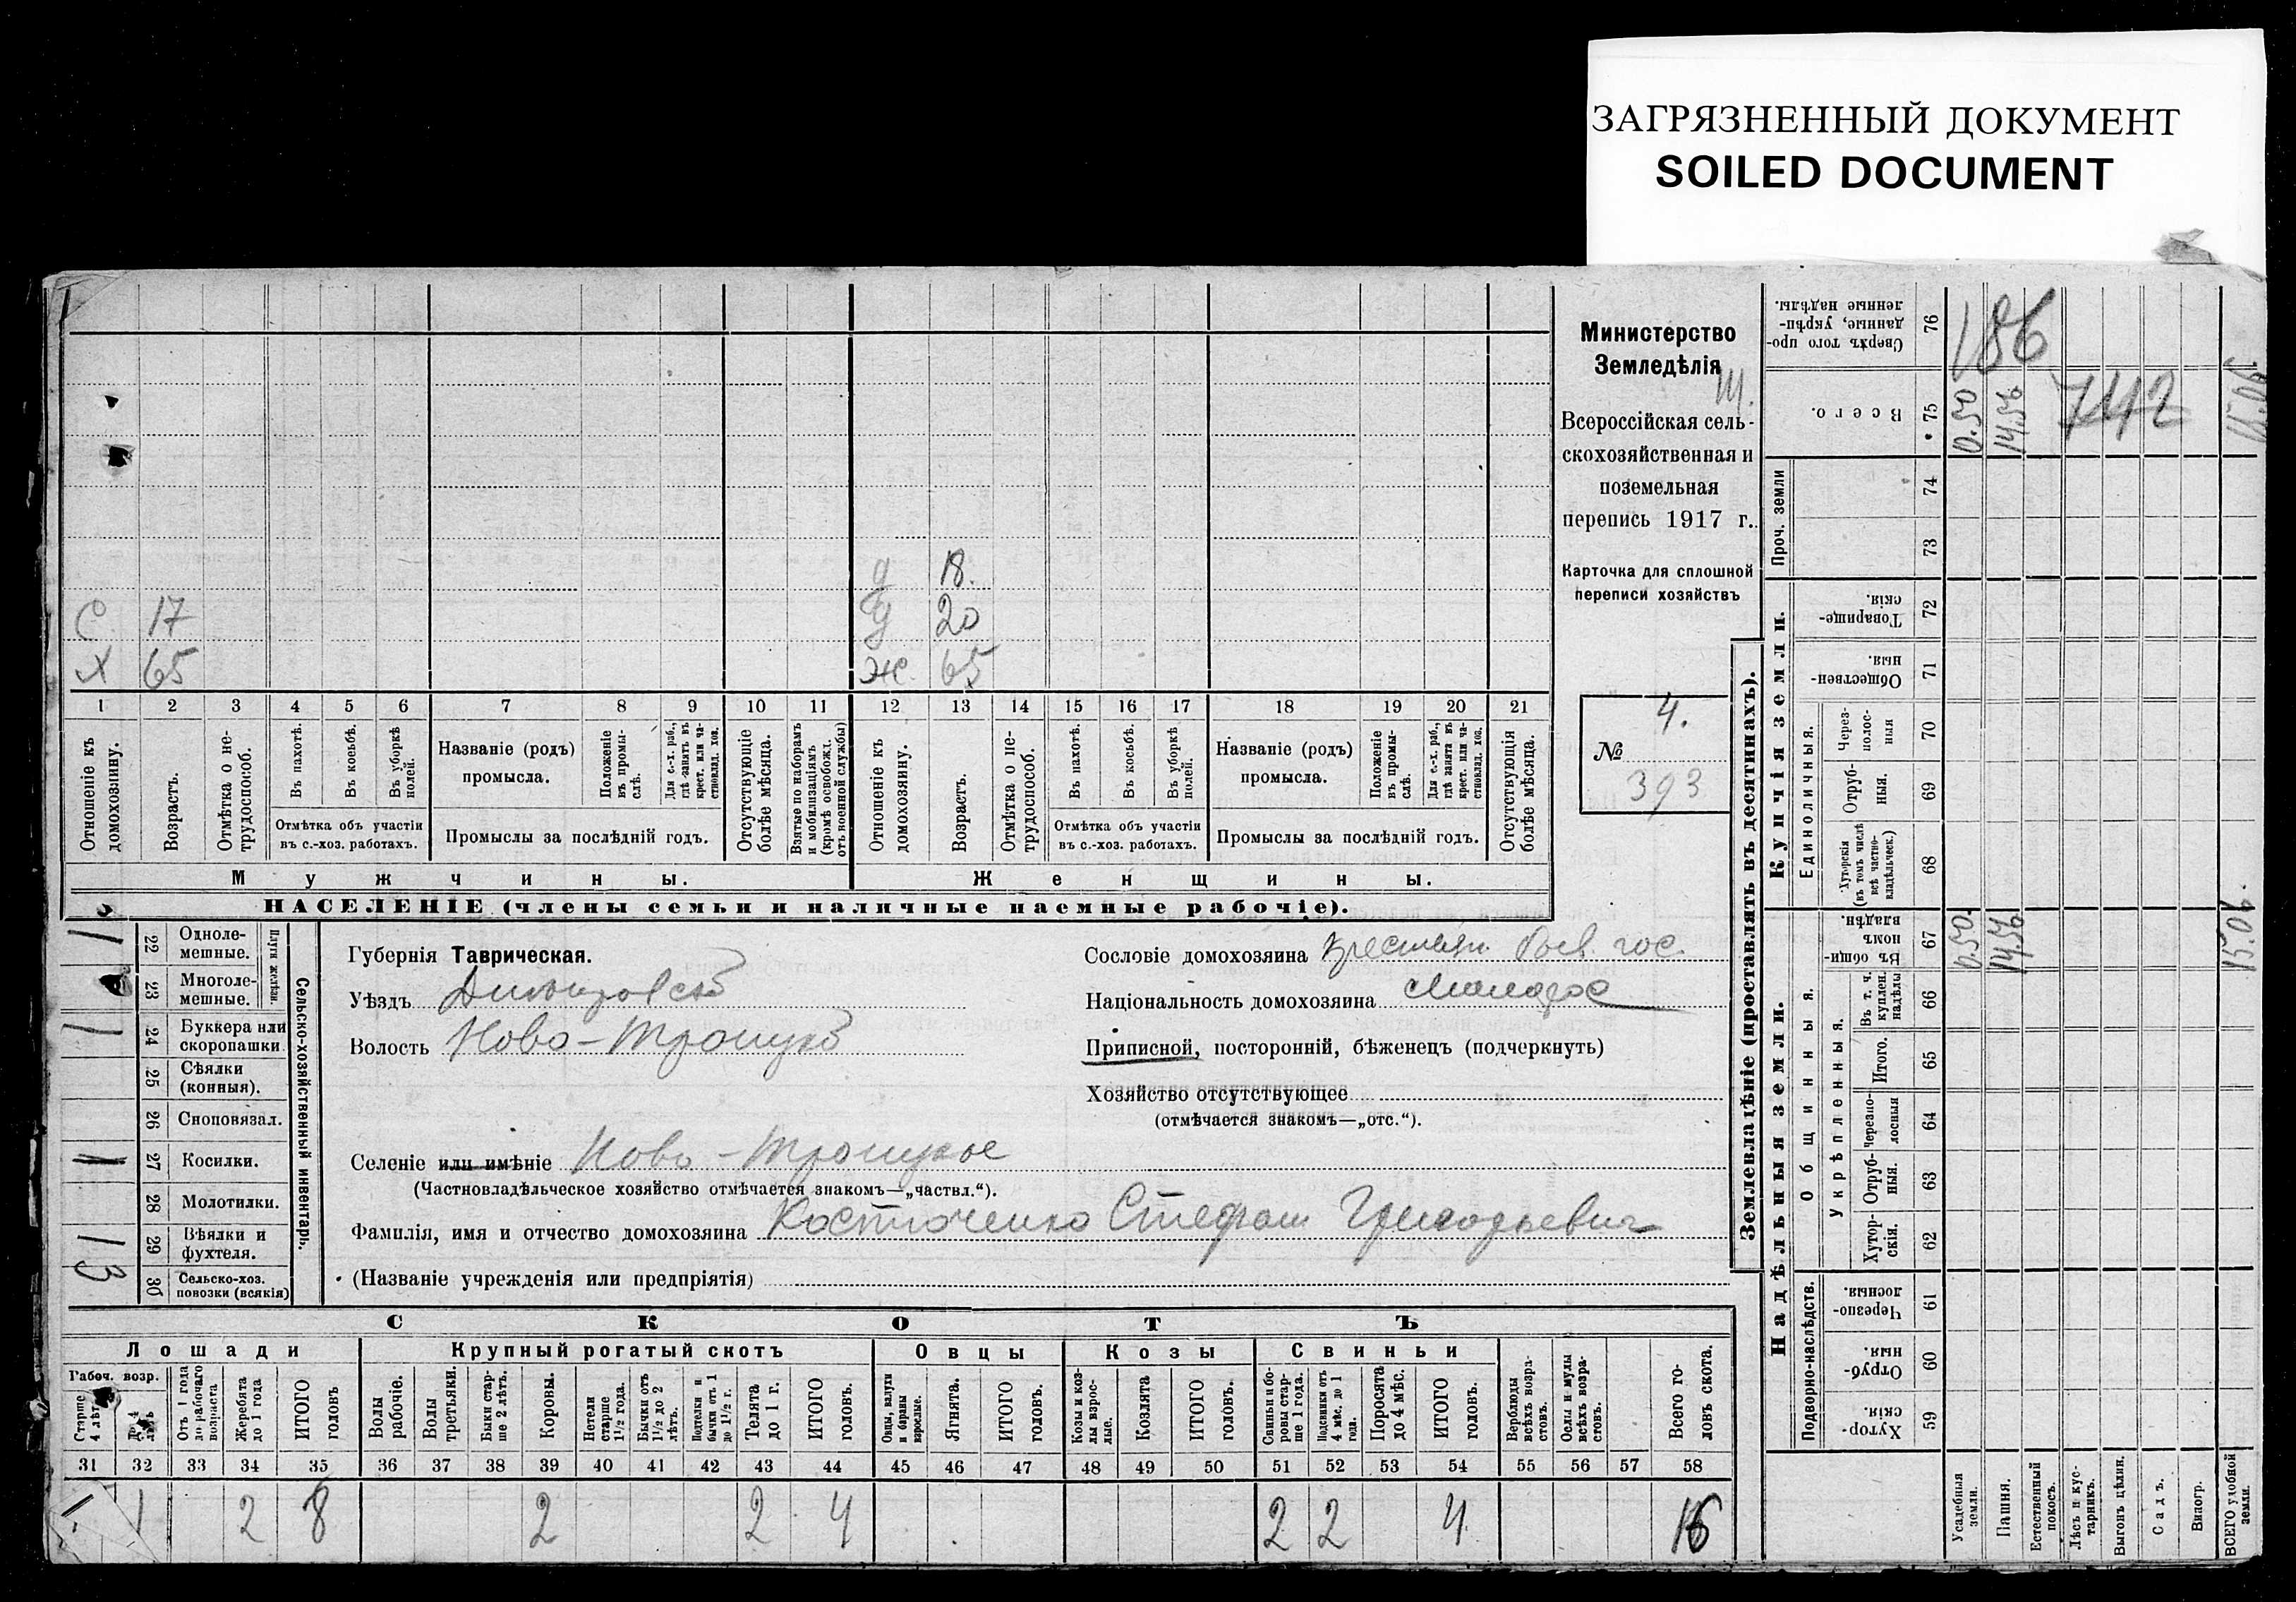 ЗАГРЯЗНЕННЫЙ ДОКУМЕНТ
SOILED DOCUMENT
Министерство
Земледѣлія
Всероссійская сель-
скохозяйственная и
поземельная
перепись 1917 г.
Карточка для сплошной
переписи хозяйствъ
4.
№
393
д 18.
С 17 д 20
Х 65 Ж. 65
1 2 3 4 5 6 7 8 9 10 11 12 13 14 15 16 17 18 19 20 21
Отношеніе къ домохозяину.
Возрастъ.
Отмѣтка о не-трудоспособ.
Въ пахотѣ.
Въ косьбѣ.
Въ уборкѣ полей.
Отмѣтка объ участіи
въ с.-хоз. работахъ.
Названіе (родъ)
промысла.
Положеніе въ промы-слѣ.
Для с.-х. раб., гдѣ занятъ въ крест. или ча-стновлад. хоз.
Промыслы за послѣдній годъ.
Отсутствующіе болѣе мѣсяца.
Взятые по наборамъ и мобилизаціямъ (кромѣ освобожд. отъ военной службы)
Отношеніе къ домохозяину.
Возрастъ.
Отмѣтка о не-трудоспособ.
Въ пахотѣ.
Въ косьбѣ.
Въ уборкѣ полей.
Отмѣтка объ участіи
въ с.-хоз. работахъ.
Названіе (родъ)
промысла.
Положеніе въ промы-слѣ.
Для с.-х. раб., гдѣ занята въ крест. или ча-стновлад. хоз.
Промыслы за послѣдній годъ.
Отсутствующія болѣе мѣсяца.
Мужчины. Женщины.
НАСЕЛЕНІЕ (члены семьи и наличные наемные рабочіе).
Сельско-хозяйственный инвентарь.
Плуги желѣзн.
1 22 Одноле-мешные.
23 Многоле-мешные.
1 24 Буккера или скоропашки.
25 Сѣялки (конныя).
26 Сноповязал.
27 Косилки.
28 Молотилки.
1 29 Вѣялки и фухтеля.
3 30 Сельско-хоз. повозки (всякія)
Губернія Таврическая.
Уѣздъ Днѣпровскій
Волость Ново-Троицкая
Селеніе или имѣніе Ново-Троицкое
(Частновладѣльческое хозяйство отмѣчается знакомъ—„частвл.“).
Фамилія, имя и отчество домохозяина Костюченко Стефан Григорьевич
(Названіе учрежденія или предпріятія)
Сословіе домохозяина крестьян. быв. гос.
Національность домохозяина малорос
Приписной, посторонній, бѣженецъ (подчеркнуть)
Хозяйство отсутствующее
(отмѣчается знакомъ—„отс.“).
СКОТЪ
Лошади Крупный рогатый скотъ Овцы Козы Свиньи
Рабоч. возр.
Старше 4 лѣтъ
До 4 лѣтъ
Отъ 1 года до рабочаго возраста
Жеребята до 1 года
ИТОГО головъ
Волы рабочіе.
Волы третьяки.
Быки стар-ше 2 лѣтъ.
Коровы.
Нетели старше 1½ года.
Бычки отъ 1½ до 2 лѣтъ.
Подтелки и бычки отъ 1 до 1½ г.
Телята до 1 г.
ИТОГО головъ.
Овцы, валухи и бараны взрослые.
Ягнята.
ИТОГО головъ.
Козы и коз-лы взрос-лые.
Козлята
ИТОГО головъ.
Свиньи и бо-ровы стар-ше 1 года.
Подсвинки отъ 4 мѣс. до 1 года.
Поросята до 4 мѣс.
ИТОГО головъ.
Верблюды всѣхъ возра-стовъ.
Ослы и мулы всѣхъ возра-стовъ.
Всего го-ловъ скота.
31 32 33 34 35 36 37 38 39 40 41 42 43 44 45 46 47 48 49 50 51 52 53 54 55 56 57 58
1 2 8 2 2 4 2 2 4 16
Землевладѣніе (проставлять въ десятинахъ).
Купчія земли.
Надѣльныя земли.
Сверхъ того про-данные, укрѣп-ленные надѣлы. 76
186
Всего. 75 0.50 14.56 742 15.06
Проч. земли 74 73
Товарище-скія. 72
Обществен-ныя. 71
Единоличныя.
Через-полос-ныя 70
Отруб-ныя. 69
Хуторскія (въ томъ числѣ всѣ частно-владѣльческ.) 68
Общинныя.
Въ общи-номъ владѣн. 67 0.50 14.56 15.06.
Укрѣпленныя.
Въ т. ч. куплен. надѣлы 66
Итого. 65
Черезпо-лосныя 64
Отруб-ныя. 63
Хутор-скія. 62
Подворно-наслѣдств.
Черезпо-лосныя. 61
Отруб-ныя. 60
Хутор-скія. 59
Усадебныя земли.
Пашня.
Естественный покосъ.
Лѣсъ и кус-тарникъ.
Выгонъ цѣлин.
Садъ.
Виногр.
ВСЕГО удобной земли.